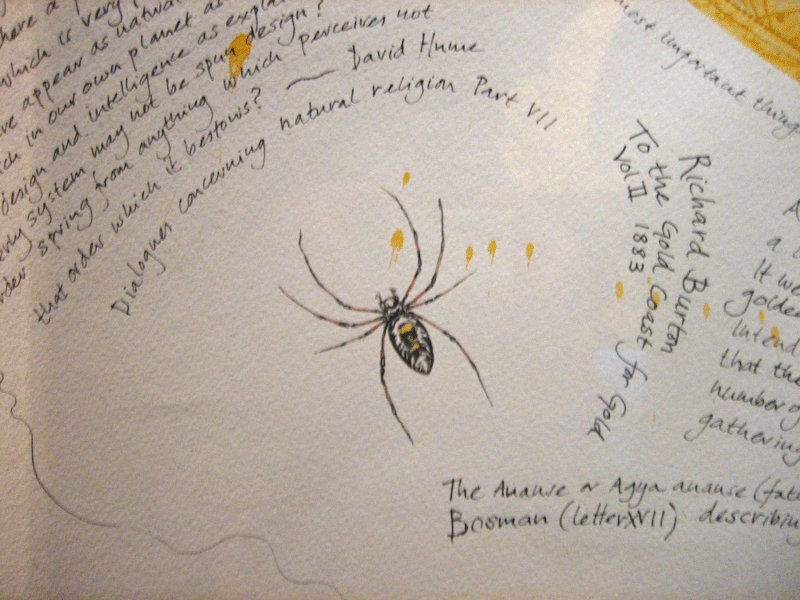 here a
which is very
we appear as natural
ich in our own planet as
design and intelligence as expla
erly system may not be spun design?
order spring from anything which perceives not
that order which it bestows? — David Hume
Dialogues concerning natural religion Part VII
most important thing
Richard Burton
To the Gold Coast for Gold
Vol II 1883
A
a
It we
golde
Intend
that the
number of
gathering
The Ananse or Agya ananse (fat
Bosman (letter XVII) describing